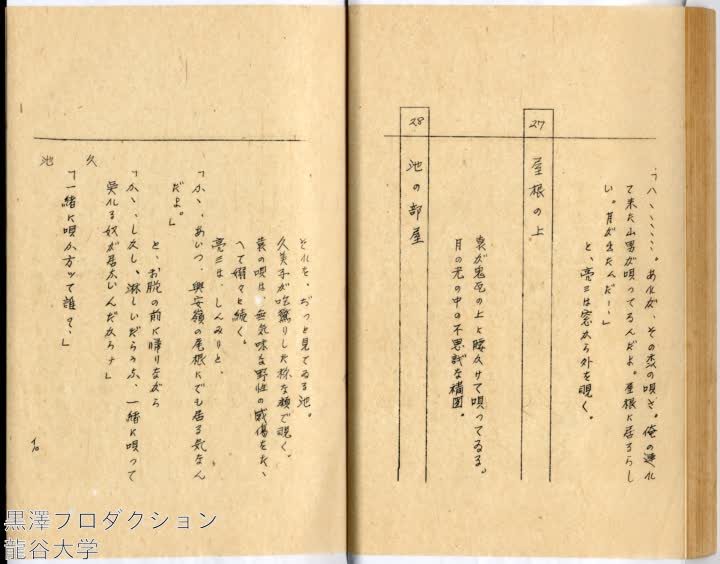 「ハヽヽヽヽヽ。あれが、その衷の唄さ。俺の連れ
て来た山男が唄ってるんだよ。屋根に居るらし
い。月が出たんだ――」
と、亮三は窓から外を覗く。
27 屋根の上
衷が鬼瓦の上に腰かけて唄ってゐる。
月の光の中の不思議な構図。
28 池の部屋
それを、ぢっと見てゐる池。
久美子が吃驚りした様な顔で覗く。
衷の唄は無気味な野性の感傷をたゝ
へて嫋々と続く。
亮三は、しんみりと、
「かヽ、あいつ、興安嶺の尾根にでも居る気なん
だよ。」
と、お腕の前に帰りながら
「かヽ、しかし、淋しいだらうな、一緒に唄って
呉れる奴が居ないんだからナ」
久
池「一緒に唄ふ方ッて誰?」